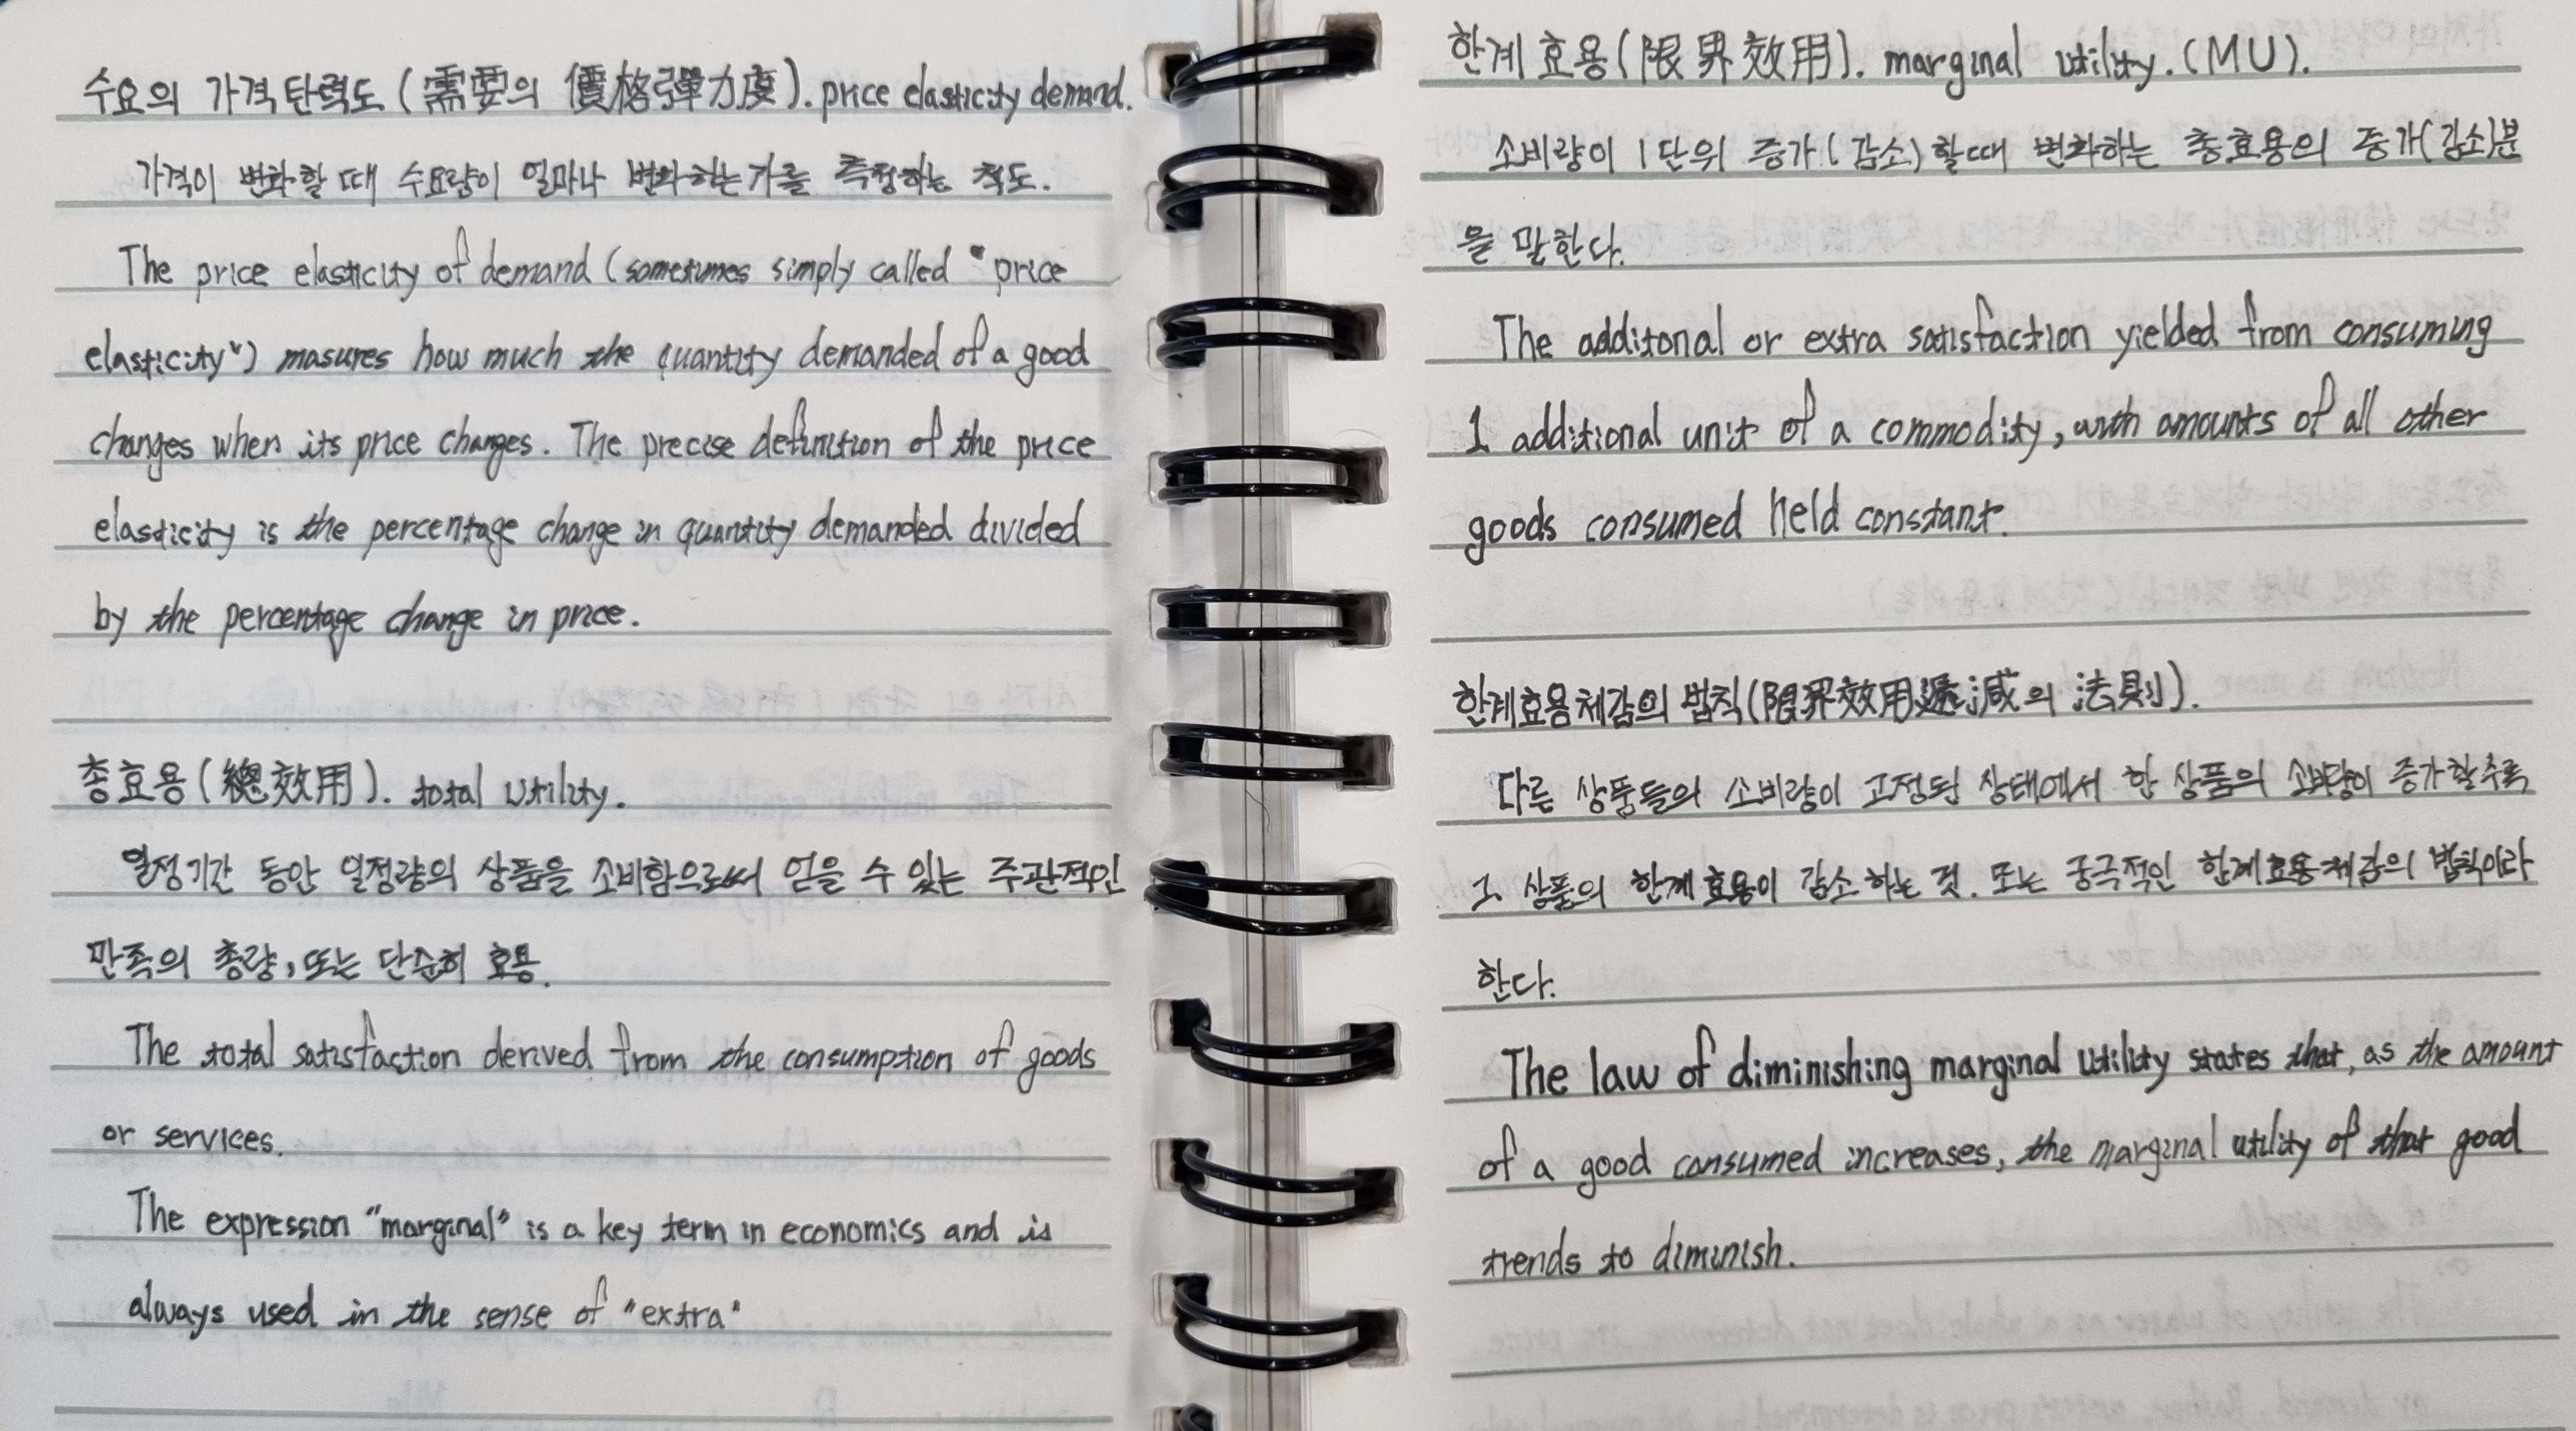 수요의 가격탄력도 (需要의 價格彈力度). price elasticity demand.
가격이 변화할 때 수요량이 얼마나 변화하는가를 측정하는 척도.
The price elasticity of demand (sometimes simply called "price
elasticity") masures how much the quantity demanded of a good
changes when its price changes. The precise definition of the price
elasticity is the percentage change in quantity demanded divided
by the percentage change in price.
총효용(總效用). total utility.
일정기간 동안 일정량의 상품을 소비함으로써 얻을 수 있는 주관적인
만족의 총량, 또는 단순히 효용.
The total satisfaction derived from the consumption of goods
or services.
The expression "marginal" is a key term in economics and is
always used in the sense of "extra"
한계효용(限界效用). marginal utility. (MU).
소비량이 1단위 증가(감소)할때 변화하는 총효용의 증가(감소)분
을 말한다.
The additonal or extra satisfaction yielded from consuming
1 additional unit of a commodity, with amounts of all other
goods consumed held constant.
한계효용체감의 법칙(限界效用遞減의 法則).
다른 상품들의 소비량이 고정된 상태에서 한 상품의 소비량이 증가할수록
그 상품의 한계효용이 감소하는 것. 또는 궁극적인 한계효용체감의 법칙이라
한다.
The law of diminishing marginal utility states that, as the amount
of a good consumed increases, the marginal utility of that good
trends to diminish.